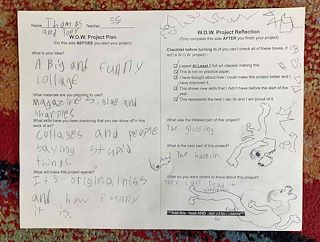 Name Thomas Teacher SS
and Theo
W.O.W. Project Plan
(Do this side BEFORE you start your project)
What is your idea?
A Big and funny
collage
What materials are you planning to use?
magazines, glue and
sharpies
What skills have you been practicing that you can show off in this
work of art?
Collages and people
saying stupid
things.
What will make this project special?
It's originalniss
and how funny
it is.
W.O.W. Project Reflection
(Only complete this side AFTER you finish your project)
Checklist before turning in (If you can't check all of these boxes, it
isn't a W.O.W. project)
I spent At Least 2 full art classes making this.
This is not on practice paper.
I have thought about how I could make this project better and I
have improved it.
This shows new skills that I didn't have before the start of the
year.
This represents the best I can do and I am proud of it.
What was the trickiest part of this project?
The glueing
What is the best part of this project?
The humor
What do you want others to know about this project?
They can read it